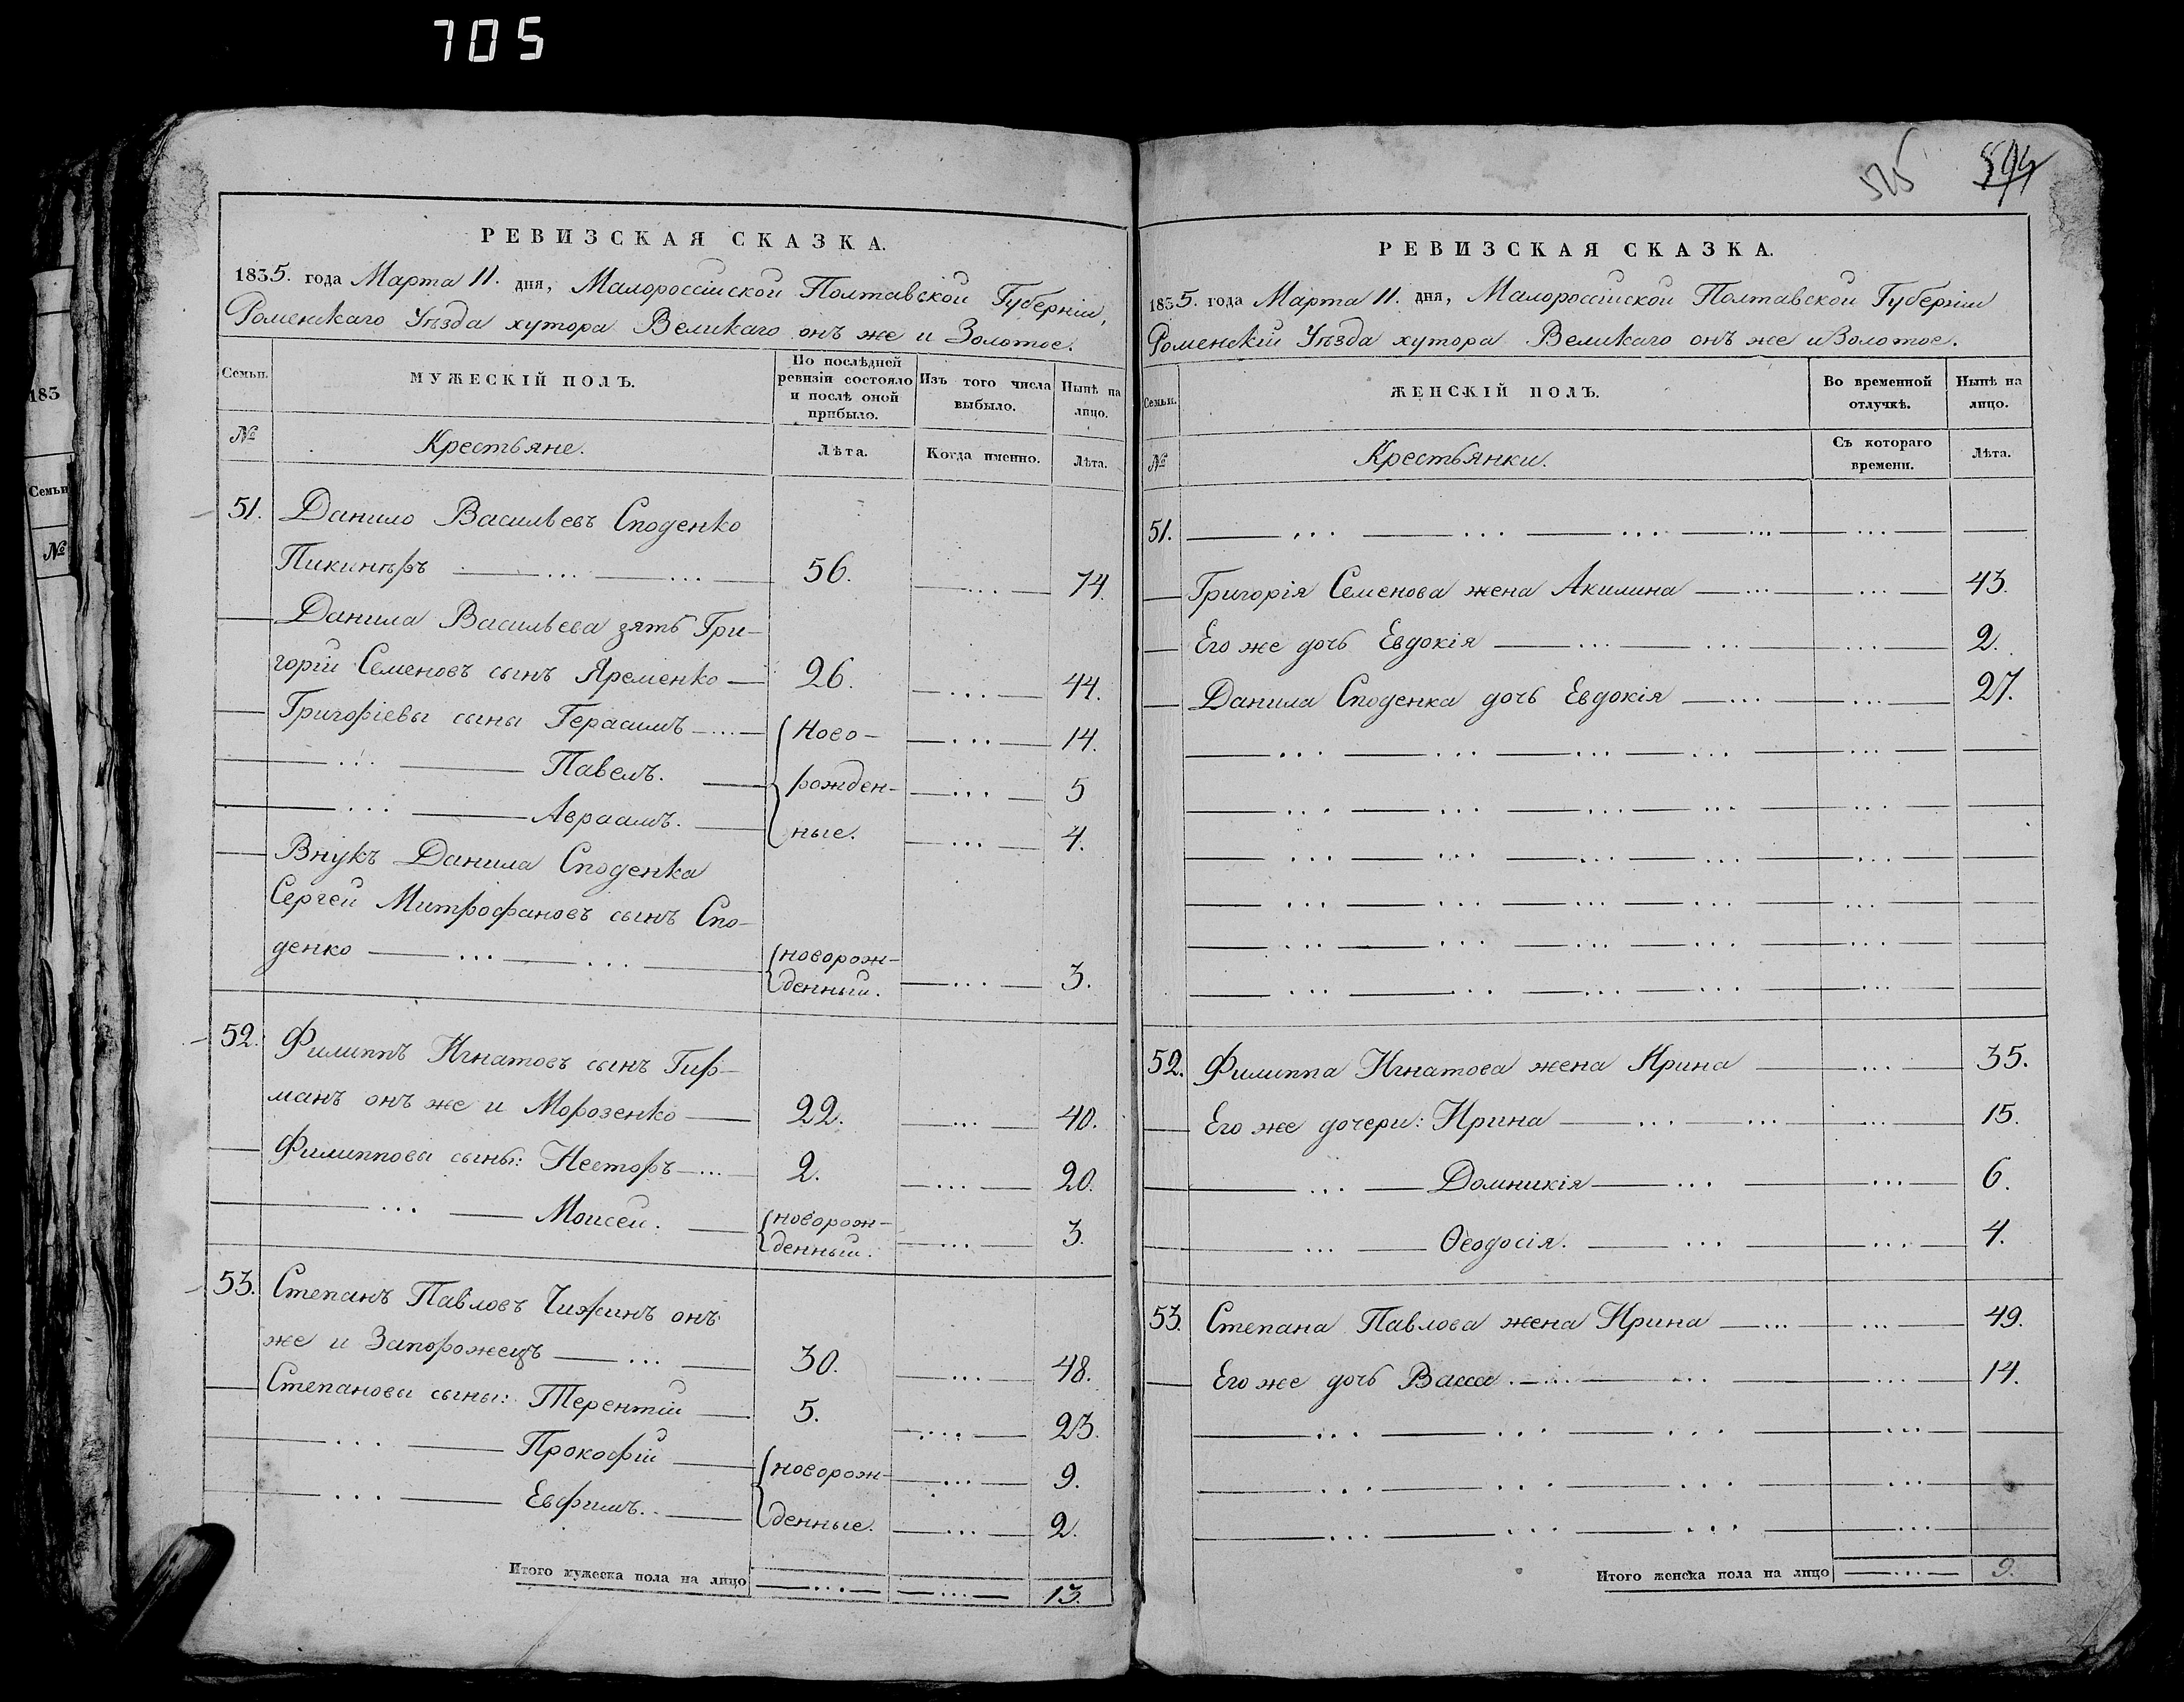 705
515 594
РЕВИЗСКАЯ СКАЗКА.
1835. года Марта 11. дня, Малороссійской Полтавской Губерніи,
Роменскаго Уѣзда хутора Великаго онъ же и Золотое.
Семьи. МУЖЕСКІЙ ПОЛЪ. По послѣдней ревизіи состояло и послѣ оной прибыло. Изъ того числа выбыло. Нынѣ на лицо.
№ Крестьяне. Лѣта. Когда именно. Лѣта.
51. Данило Васильевъ Споденко
Пикинѣръ 56. 74.
Данила Васильева зять Гри-
горій Семеновъ сынъ Яременко 26. 44.
Григоріевы сыны Герасимъ Ново- 14.
Павелъ. рожден- 5
Авраамъ. ные. 4.
Внукъ Данила Споденка
Сергей Митрофановъ сынъ Спо-
денко новорож-
денный. 3.
52. Филиппъ Игнатовъ сынъ Гир-
манъ онъ же и Морозенко 22. 40.
Филипповы сыны: Несторъ 2. 20.
Моисей. новорож-
денный. 3.
53. Степанъ Павловъ Чижинъ онъ
же и Запорожецъ 30. 48.
Степановы сыны: Терентій 5. 23.
Прокофій новорож- 9.
Евфимъ. денные. 2.
Итого мужеска пола на лицо 13.
РЕВИЗСКАЯ СКАЗКА.
1835. года Марта 11. дня, Малороссійской Полтавской Губерніи
Роменскій Уѣзда хутора Великаго онъ же и Золотое.
Семьи. ЖЕНСКІЙ ПОЛЪ. Во временной отлучкѣ. Нынѣ на лицо.
№ Крестьянки. Съ котораго времени. Лѣта.
51.
Григорія Семенова жена Акилина 43.
Его же дочь Евдокія 2.
Данила Споденка дочь Евдокія 27.
52. Филиппа Игнатова жена Ирина 35.
Его же дочери: Ирина 15.
Домникія 6.
Ѳеодосія. 4.
53. Степана Павлова жена Ирина 49.
Его же дочь Васса. 14.
Итого женска пола на лицо 9.